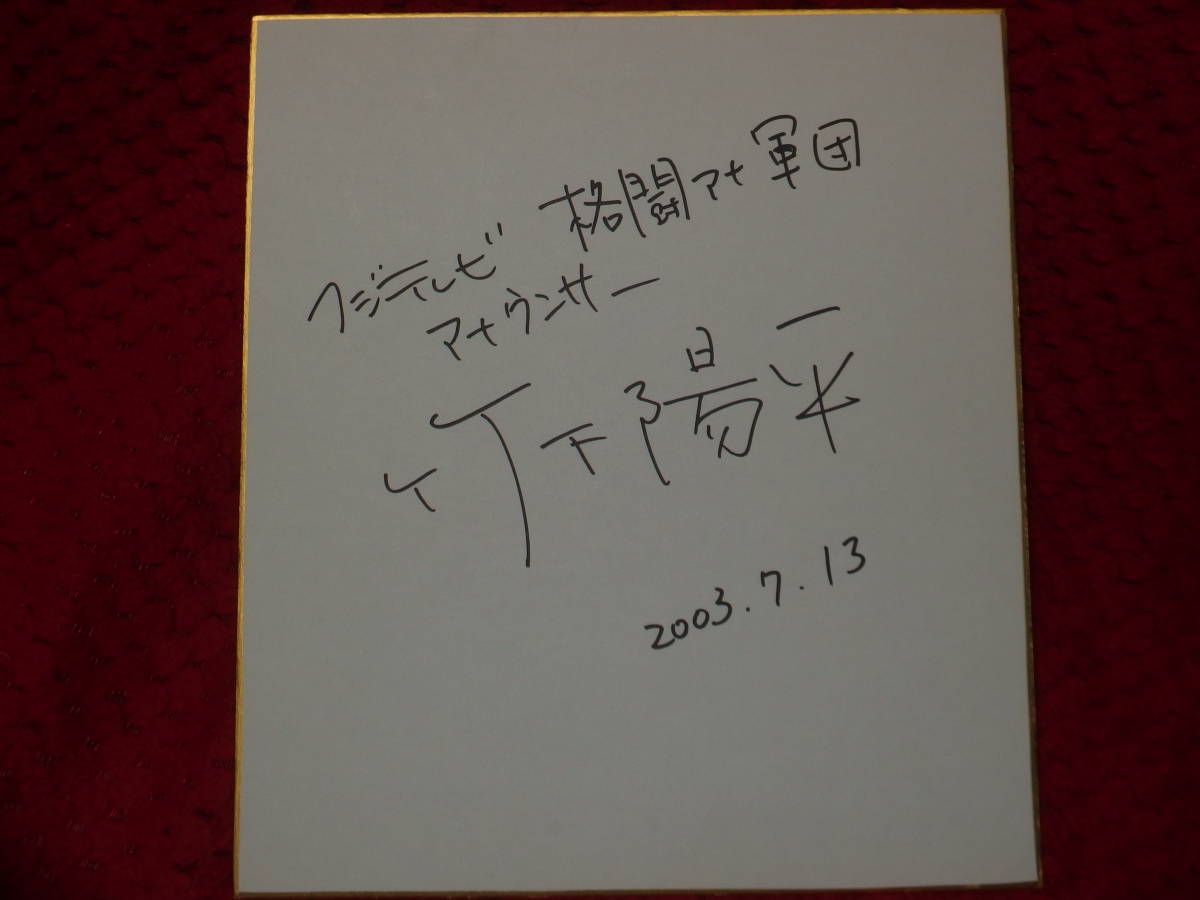 フジテレビ 格闘アナ軍団
アナウンサー
竹下陽平
2003.7.13